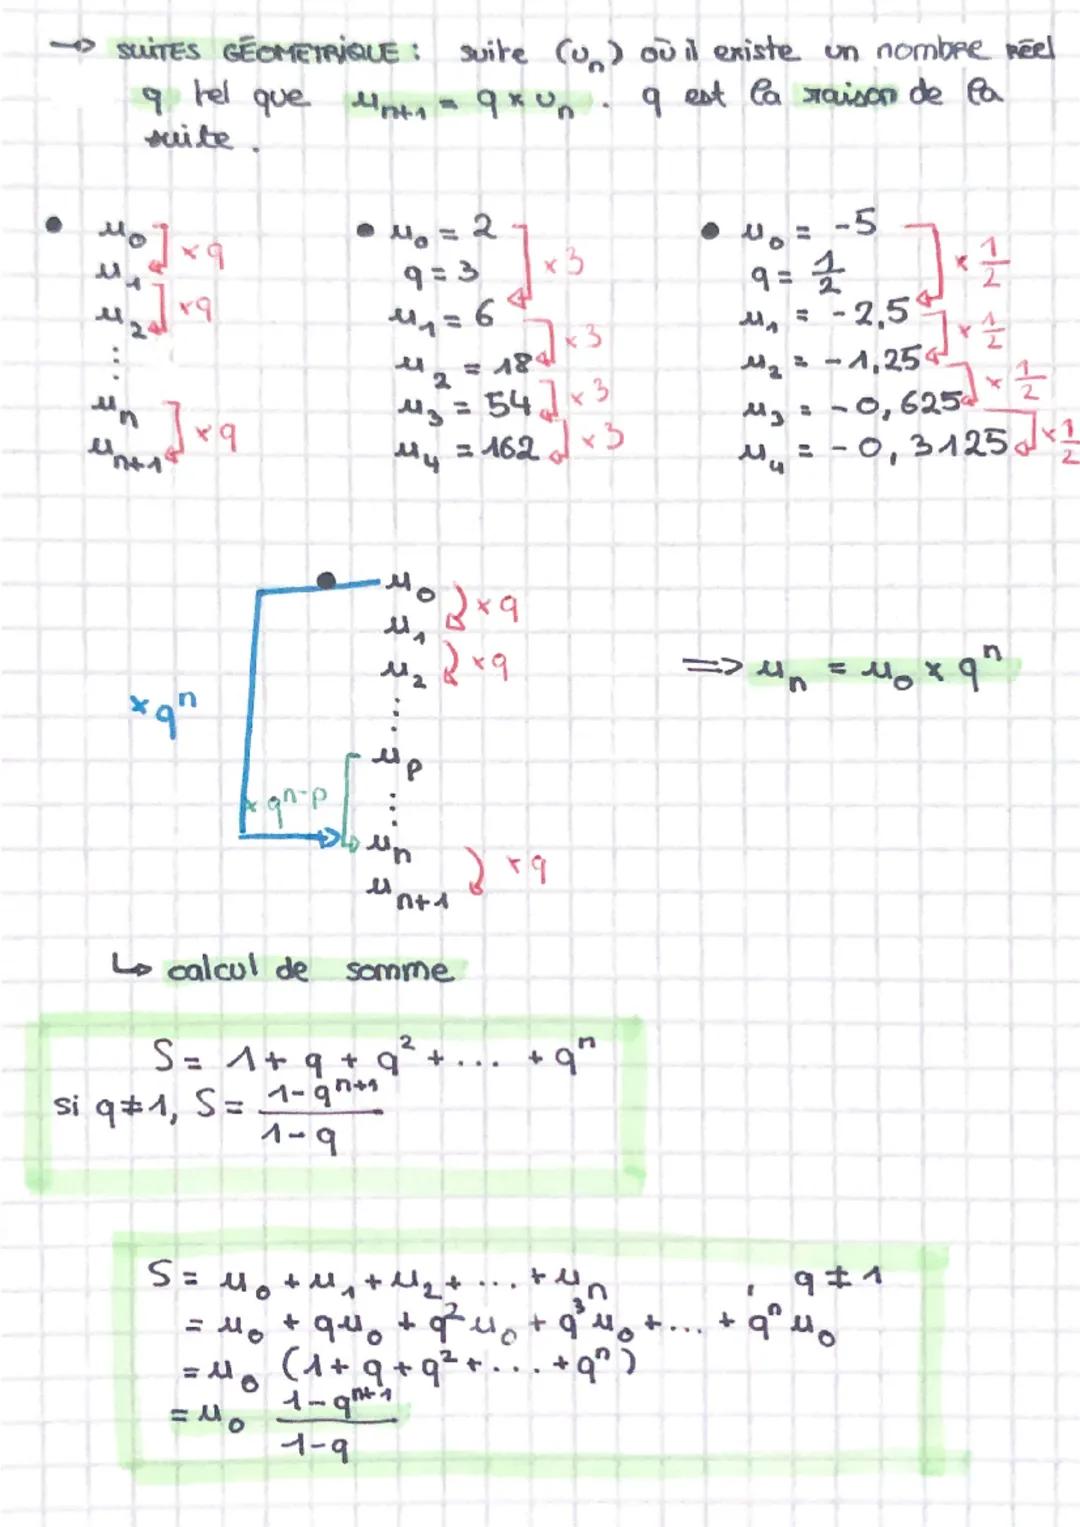 → SUITES GÉOMETRIQUE : suite (uₙ) où il existe un nombre réel
q tel que uₙ₊₁ = q × uₙ . q est la raison de la
suite .
• u₀
× q
u₁
× q
u₂
⋮
uₙ
× q
uₙ₊₁
• u₀ = 2
q = 3
× 3
u₁ = 6
× 3
u₂ = 18
u₃ = 54 × 3
u₄ = 162 × 3
• u₀ = -5
q = 1/2
× 1/2
u₁ = -2,5
× 1/2
u₂ = -1,25
× 1/2
u₃ = -0,625
u₄ = -0,3125 × 1/2
u₀
× q
u₁
u₂ × q
⋮
× qⁿ
uₚ
× qⁿ⁻ᵖ
⋮
uₙ
× q
uₙ₊₁
=> uₙ = u₀ × qⁿ
↳ calcul de somme
S = 1 + q + q² + ... + qⁿ
si q ≠ 1, S = (1-qⁿ⁺¹)/(1-q)
S = u₀ + u₁ + u₂ + ... + uₙ , q ≠ 1
= u₀ + qu₀ + q²u₀ + q³u₀ + ... + qⁿu₀
= u₀ (1 + q + q² + ... + qⁿ)
= u₀ (1-qⁿ⁺¹)/(1-q)